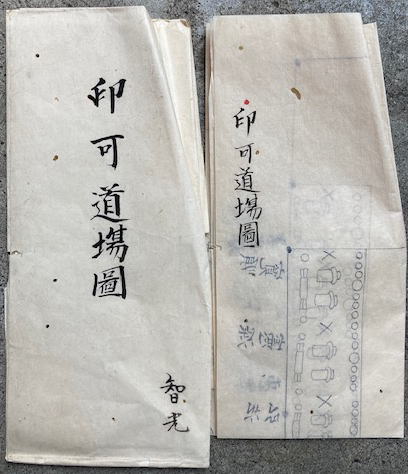 印可道場圖
智光
印可道場圖